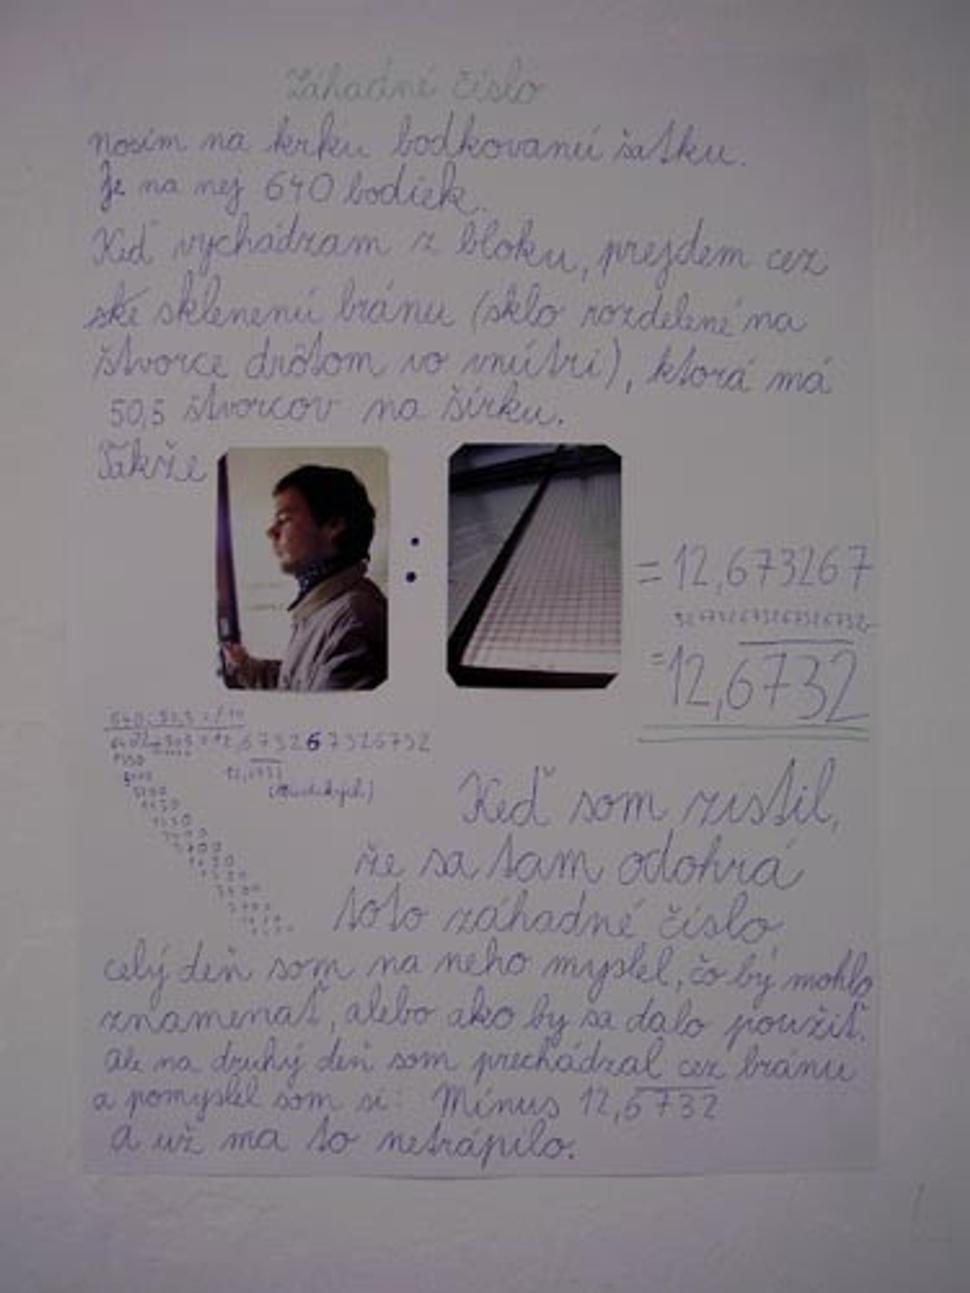 Záhadné číslo
nosím na krku bodkovanú šatku.
Je na nej 640 bodiek.
Keď vychádzam z bloku, prejdem cez
ske sklenenú bránu (sklo rozdelené na
štvorce drôtom vo vnútri), ktorá má
50,5 štvorcov na šírku.
Takže
:
= 12,673267
= 12,6732
640:50,5=
12,6732
Keď som zistil,
že sa tam odohrá
toto záhadné číslo
celý deň som na neho myslel, čo by mohlo
znamenať, alebo ako by sa dalo použiť.
Ale na druhý deň som prechádzal cez bránu
a pomyslel som si: Mínus 12,6732
A už ma to netrápilo.